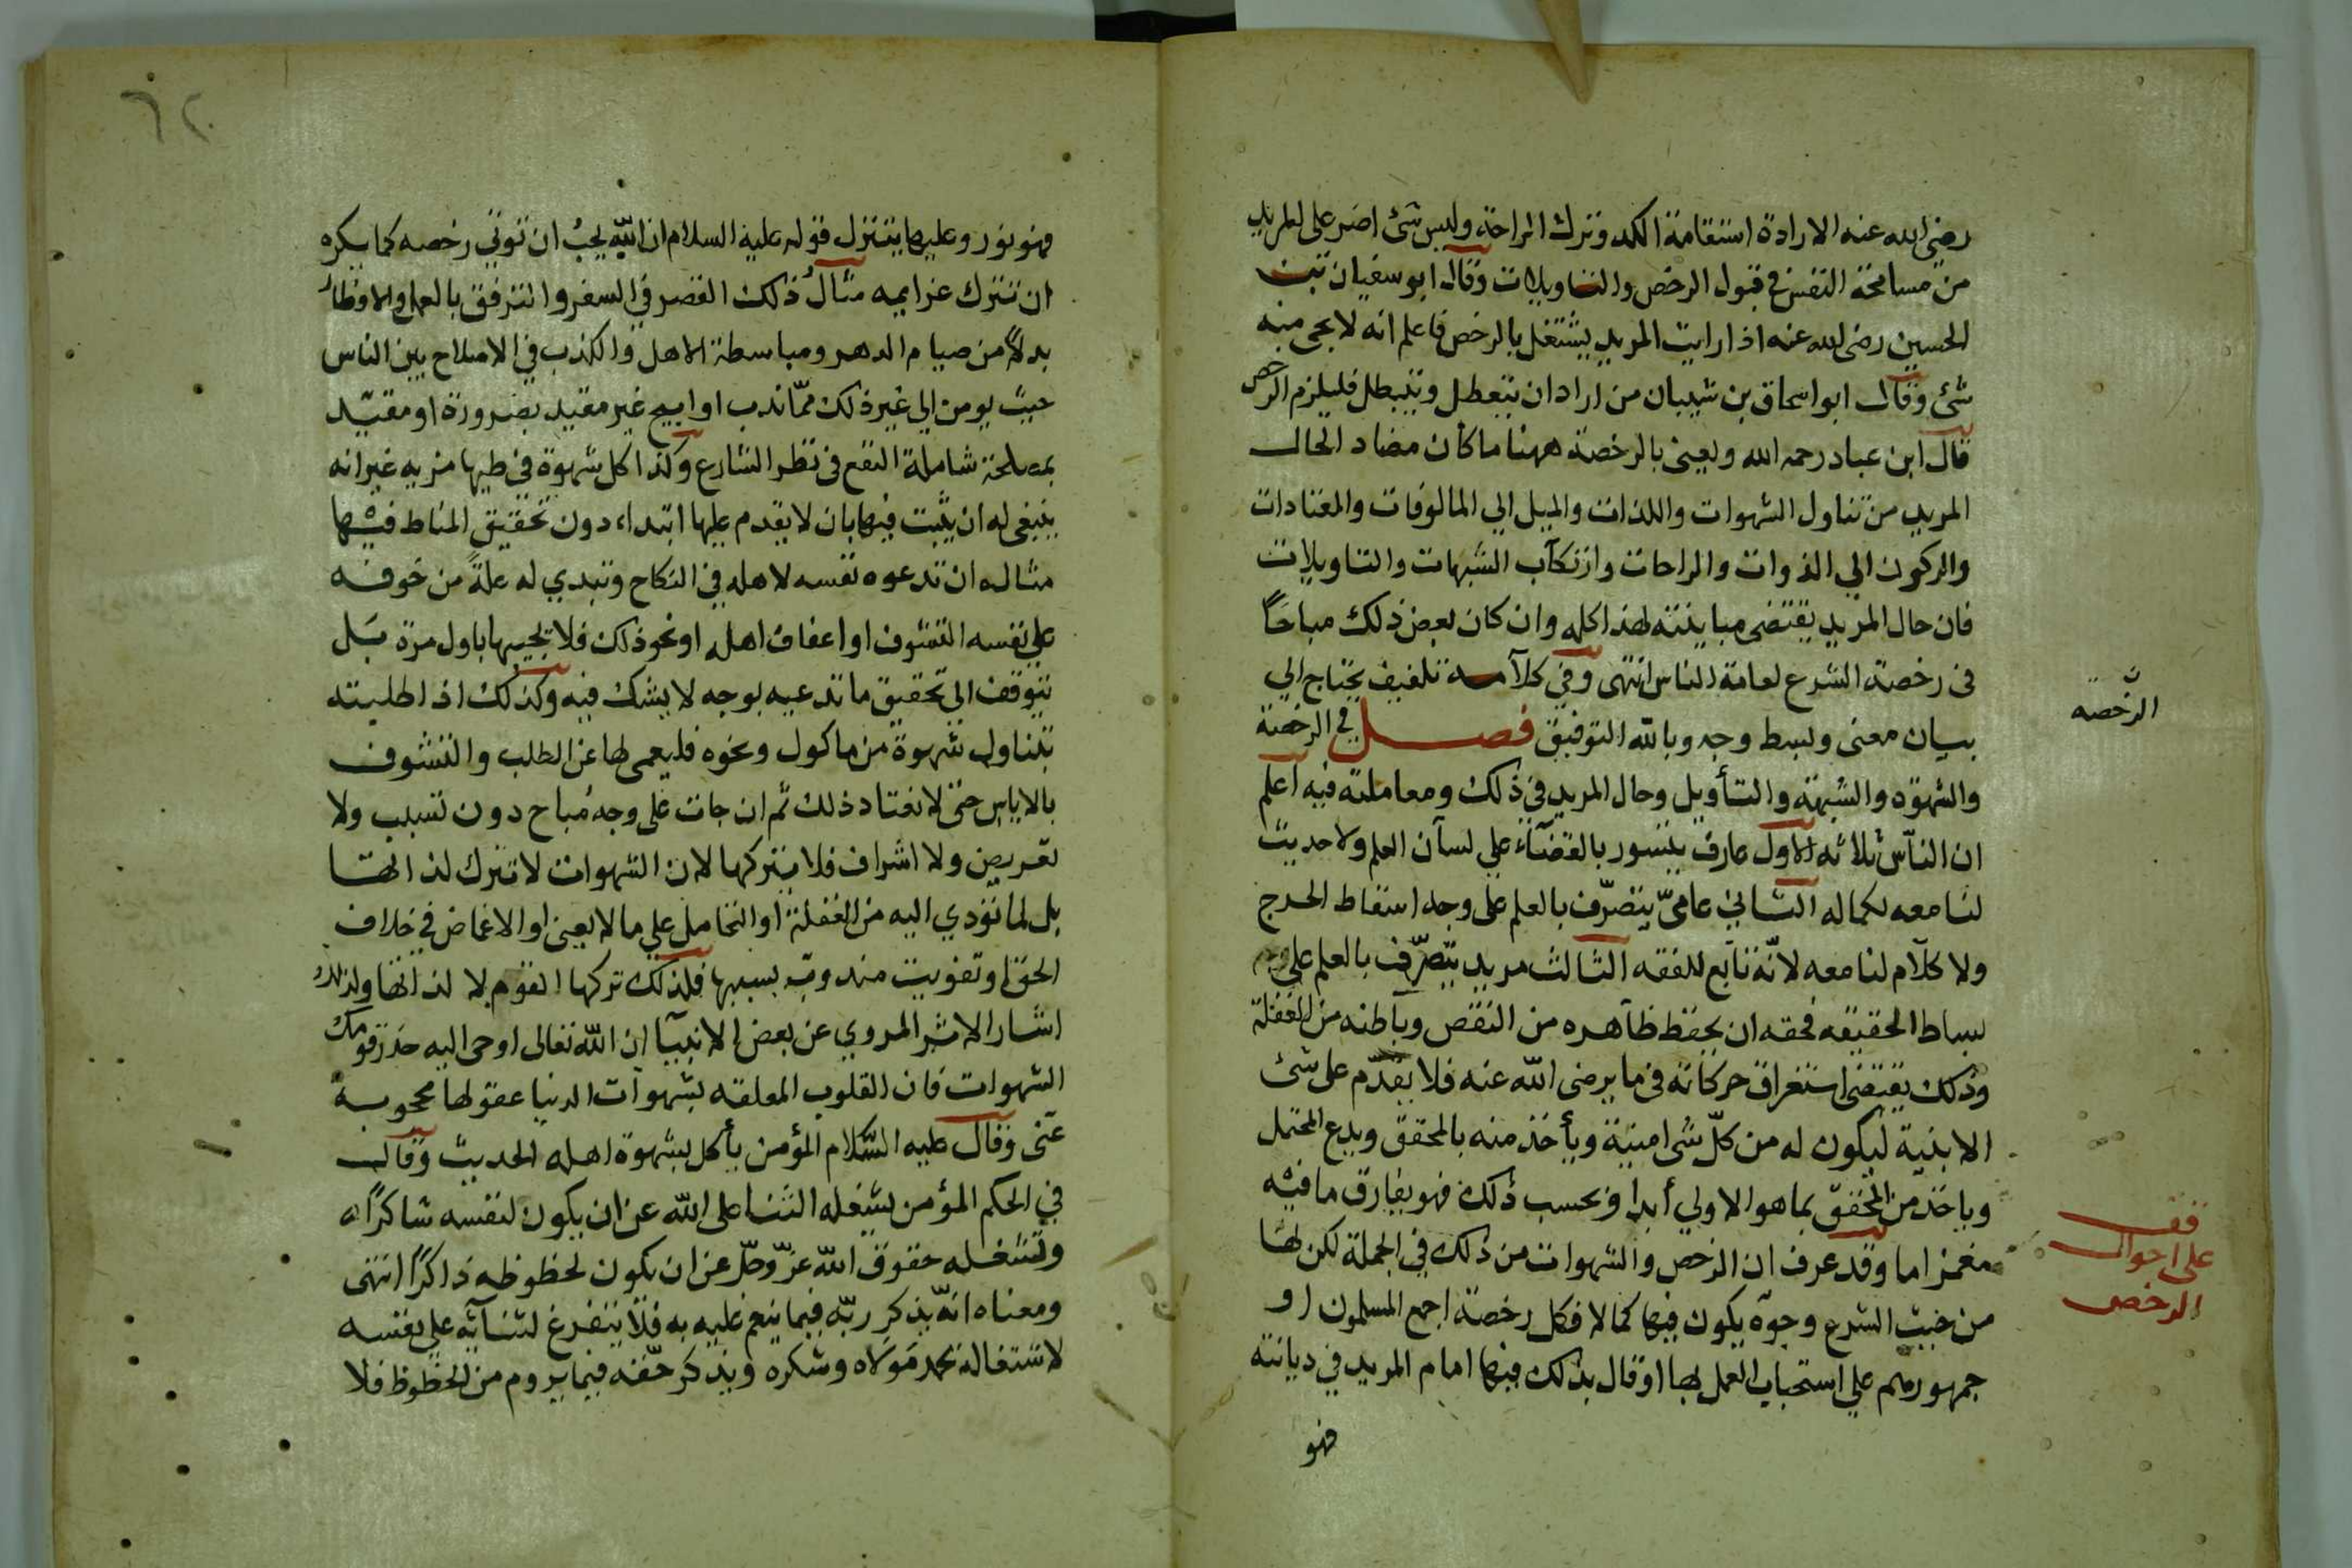 رضي الله عنه الارادة استقامة الكد وترك الراحة وليس شئ اضر على المريد
من مسامحة النفس في قبول الرخص والتاويلات وقال ابو سفيان
الحسين رضى الله عنه اذا رايت المريد يشتغل بالرخص فاعلم انه لا يجى منه
شئ وقال ابو اسحاق بن شيبان من اراد ان يتعطل ويتبطل فليلزم الرخص
قال ابن عباد رحمه الله ويعنى بالرخصة ههنا ما كان مضاد الحال
المريد من تناول الشهوات واللذات والميل الي المالوفات والمعتادات
والركون الي الذوات والراحات وارتكآب الشبهات والتاويلات
فان حال المريد يقتضى مباينته لهذا كله وان كان بعض ذلك مباحًا
فى رخصة الشرع لعامة الناس انتهى وفي كلآمه تلفيف يحتاج الي
بيان معنى وبسط وجه وبالله التوفيق فصل في الرخصة
الرخصه
والشهوة والشبهة والتأويل وحال المريد في ذلك ومعاملته فيه اعلم
ان النآس ثلاثه الاول عارف بالقضآء علي لسآن العلم ولا حديث
لنا معه لكماله الثاني عامىّ يتصرّف بالعلم على وجه اسقاط الحرج
ولا كلآم لنا معه لانّه تابع للفقه الثالث مريد يتصرّف بالعلم علي
بساط الحقيقه فحقه ان يحفظ ظآهره من النقص وبآطنه من الغفلة
وذلك يقتضى استغراق حركاته فى ما يرضى الله عنه فلا يقدّم على شئ
الا بنية ليكون له من كلّ شى امنية ويأخذ منه بالمحقق ويدع المحتمل
وياخذ من المحقق بما هو الاولي أبدا وبحسب ذلك فهو يفارق ما فيه
مغمز اما وقد عرف ان الرخص والشهوات من ذلك في الجملة لكن لها
قف
على احوال
الرخص
من حيث الشرع وجوه يكون فيها كمالا فكل رخصة اجمع المسلمون او
جمهورهم علي استحباب العمل بها او قال بذلك فيها امام المريد في ديانته
فهو
٦٢
فهو نور وعليها يتنزل قوله عليه السلام ان الله يحب ان توتي رخصه كما يكره
ان تترك عزايمه مثال ذلك القصر في السفر والترفق بالعمل والافطار
بدلاً من صيام الدهر ومباسطة الاهل والكذب في الاصلاح بين الناس
حيث يومن الي غير ذلك ممّا ندب او ابيح غير مقيد بضرورة او مقيّد
بمصلحة شاملة النفع فى نظر الشارع وكذا كل شهوة فى طيها مزيه غير انه
ينبغى له ان يثبت فيها بان لا يقدم عليها ابتداء دون تحقيق المناط فيها
مثاله ان تدعوه نفسه لاهله في النكاح وتبدي له علةً من خوفه
على نفسه التشوف او اعفاف اهله او نحو ذلك فلا يجيبها باول مرة بل
يتوقف الى تحقيق ما تدعيه بوجه لا يشك فيه وكذلك اذا طلبته
بتناول شهوة من ماكول ونحوه فليعمى لها عن الطلب والتشوف
بالاياس حتى لا تعتاد ذلك ثم ان جات على وجه مُباح دون تسبب ولا
تعريض ولا اشراف فلا يتركها لان الشهوات لا تترك لذاتها
بل لما تؤدي اليه من الغفلة او التحامل علي ما لا يعنى او الاغماض في خلاف
الحق او تفويت مندوب بسببها فلذلك تركها القوم لا لذاتها ولذلك
اشار الاثر المروي عن بعض الانبيآ ان الله تعالى اوحى اليه حذر قومك
الشهوات فان القلوب المعلقه بشهوآت الدنيا عقولها محجوبة
عنّى وقال عليه السّلام المؤمن يأكل بشهوة اهله الحديث وقال
في الحكم المؤمن يشغله الثنا على الله عن ان يكون لنفسه شاكرًا
وتشغله حقوق الله عزّ وجلّ عن ان يكون لحظوظه ذاكرًا انتهى
ومعناه انّه يذكر ربّه فيما ينعم عليه به فلا يتفرغ لثنآئه علي نفسه
لاشتغاله بحمد مَولاه وشكره ويذكر حقّه فيما يروم من الحظوظ فلا